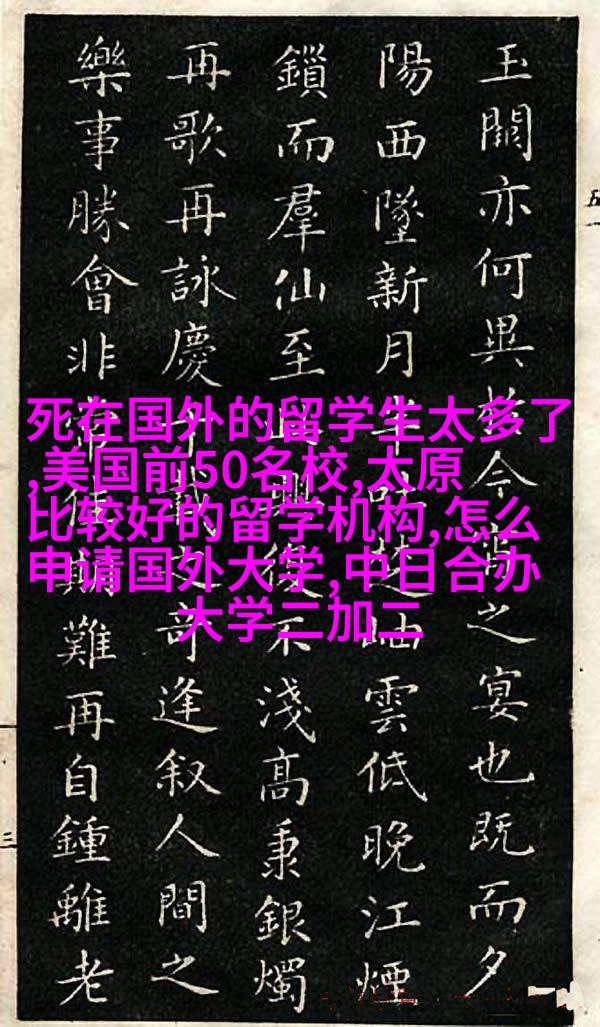 玉闕亦何異於今宵之宴也既而夕
陽西墜新月半吐楚岫雲低晚江煙
鎖而羣仙至興復不淺高秉銀燭
再歌再詠慶千載之奇逢叙人間之
樂事勝會非難再自鍾離老
死在国外的留学生太多了
,美国前50名校,太原
比较好的留学机构,怎么
申请国外大学,中日合办
大学二加二
五一
三